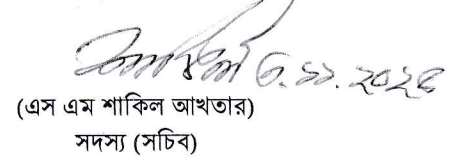 ৬.১১.২০২৫
(এস এম শাকিল আখতার)
সদস্য (সচিব)